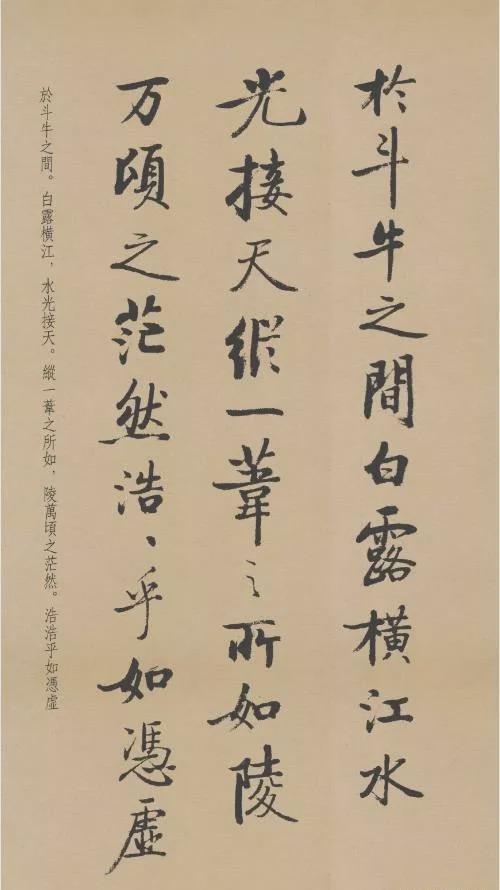 於斗牛之間白露橫江水
光接天縱一葦之所如陵
万頃之茫然浩〻乎如馮虛
於斗牛之間。白露橫江，水光接天。縱一葦之所如，陵萬頃之茫然。浩浩乎如憑虛